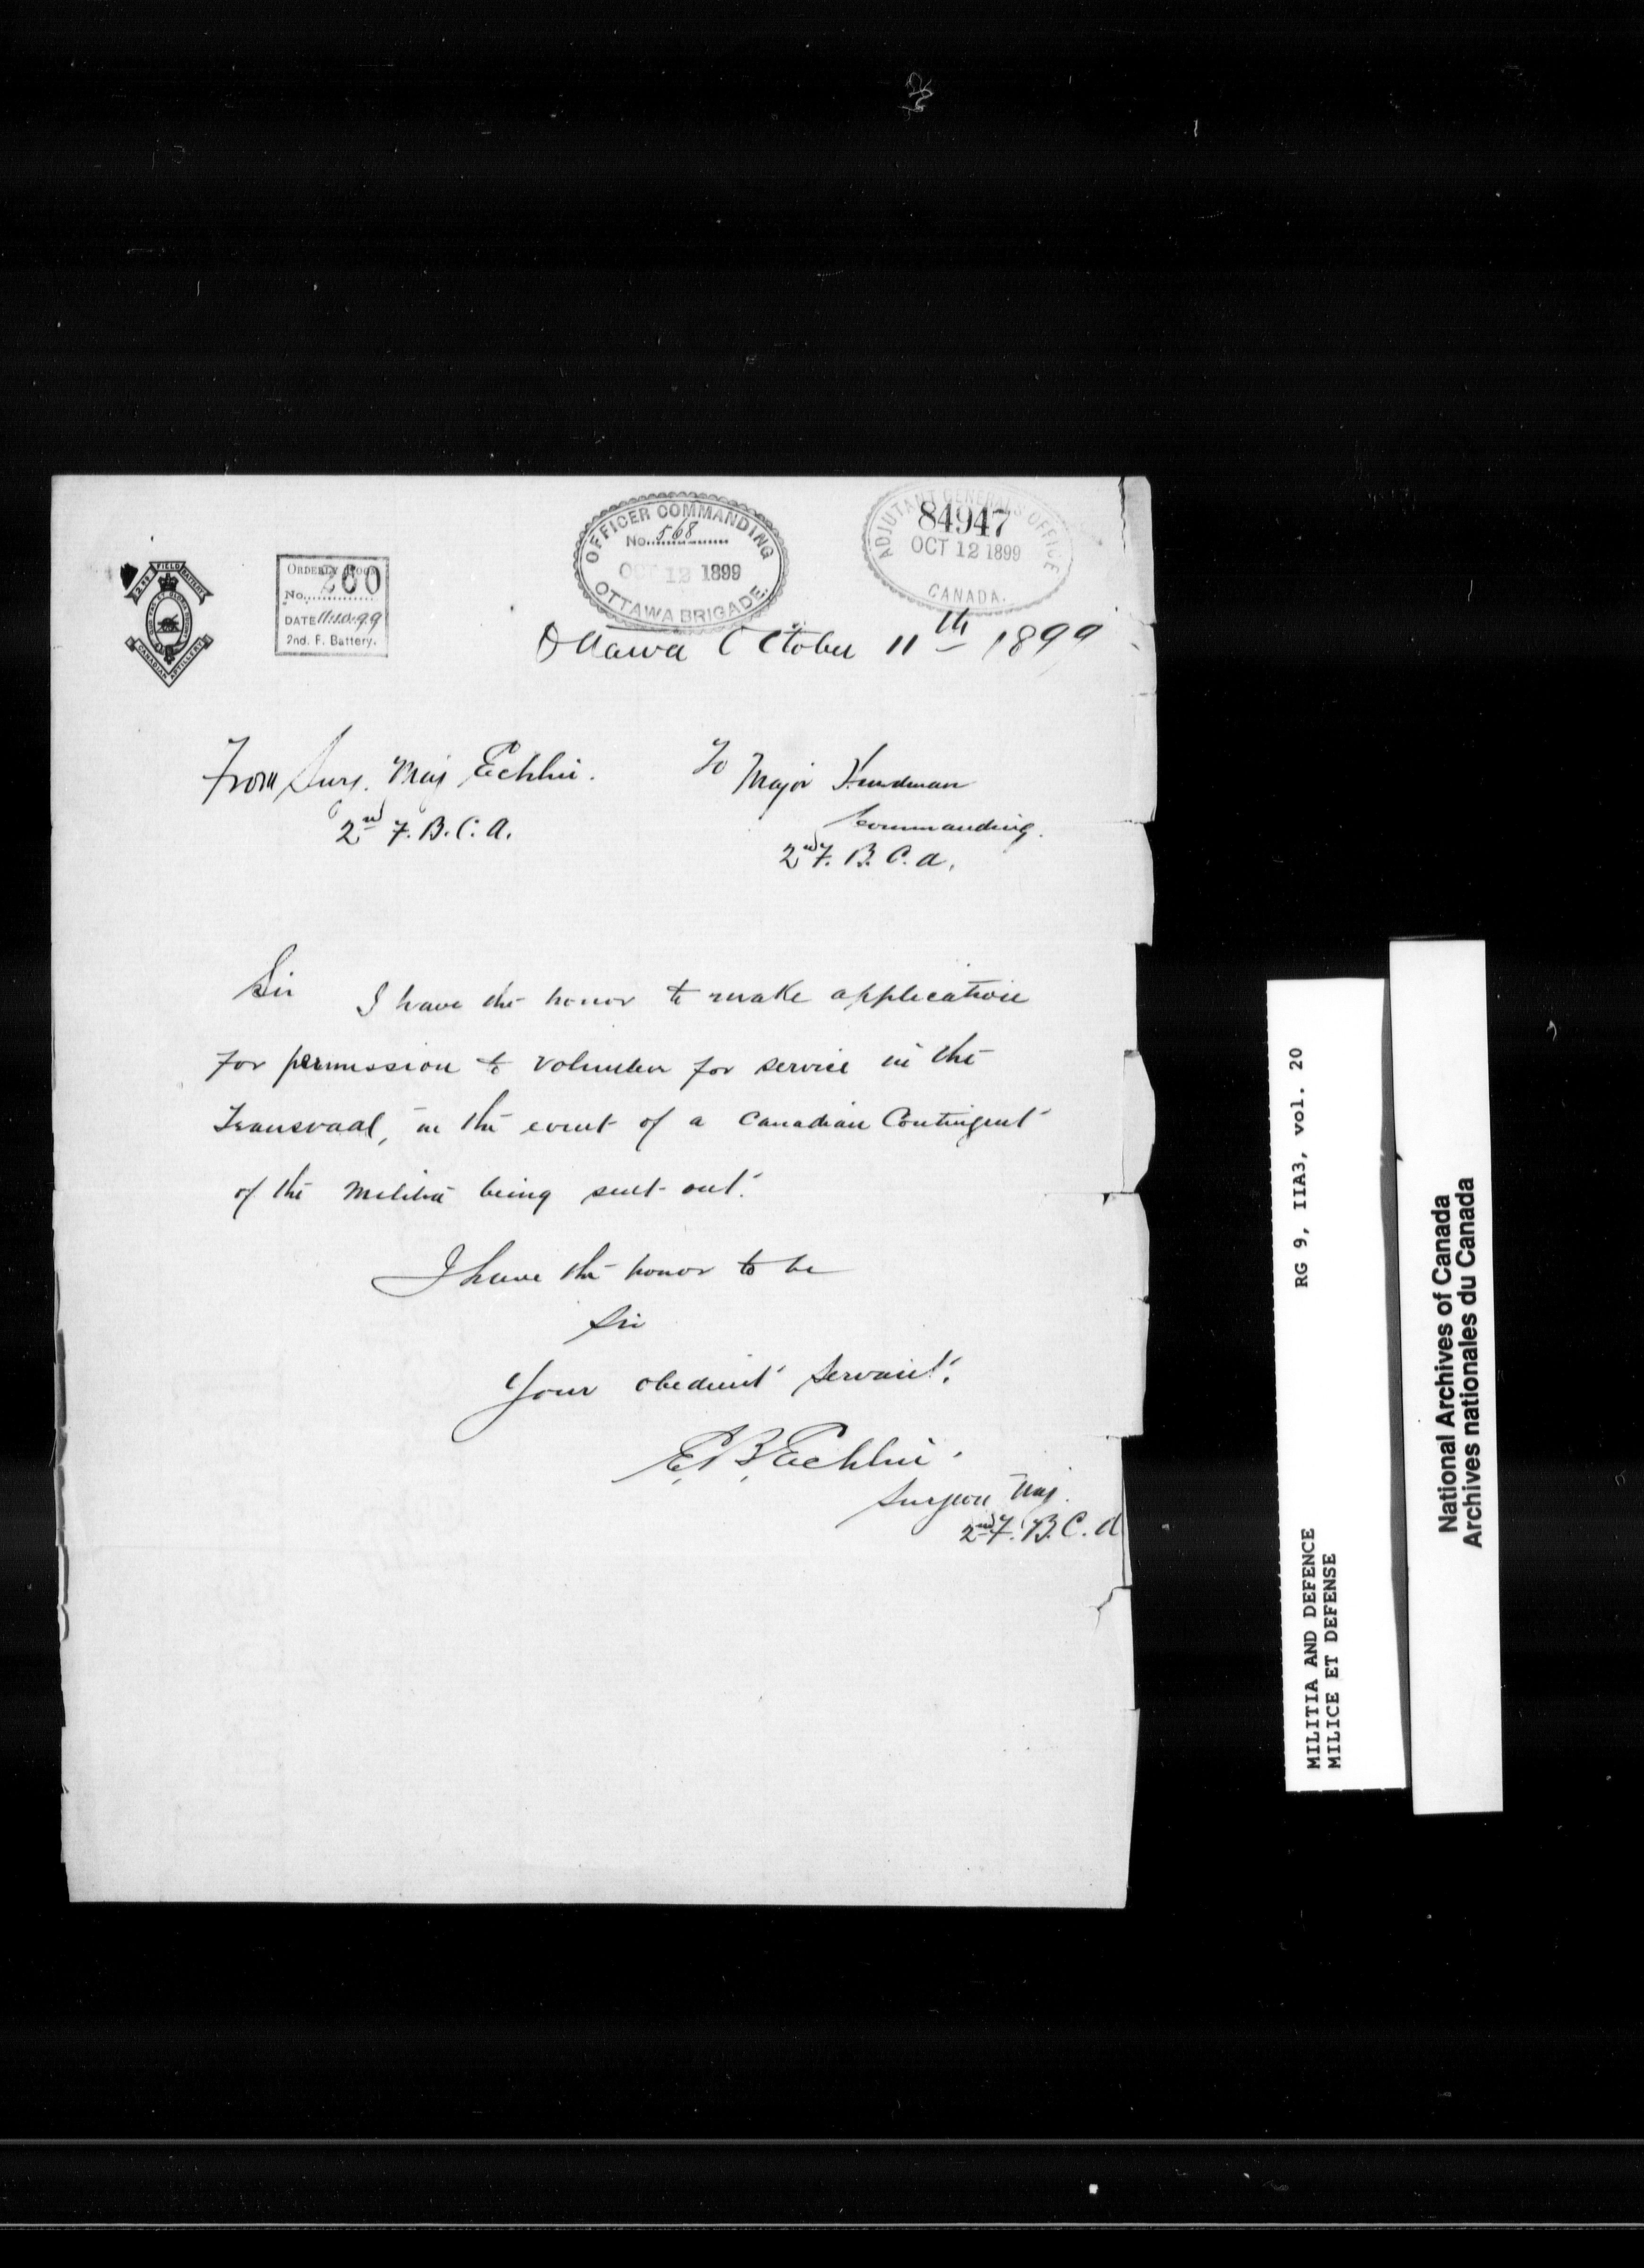 OFFICER COMMANDING
No. 568
OCT 12 1899
OTTAWA BRIGADE.
ADJUTANT GENERAL'S OFFICE
84947
OCT 12 1899
CANADA.
2ND FIELD BATTERY
CANADIAN ARTILLERY
ORDERLY ROOM
No. 260
DATE 11.10.99
2nd. F. Battery.
Ottawa October 11th 1899
From Surg. Maj Echlin.
2nd F. B. C. A.
To Major Hurdman
Commanding.
2nd F. B. C. A.
Sir I have the honor to make application
for permission to volunteer for service in the
Transvaal, in the event of a Canadian Contingent
of the Militia being sent out.
I have the honor to be
Sir
Your obedient servant.
E. B. Echlin.
Surgeon Maj.
2nd F. B. C. A
RG 9, IIA3, vol. 20
MILITIA AND DEFENCE
MILICE ET DEFENSE
National Archives of Canada
Archives nationales du Canada